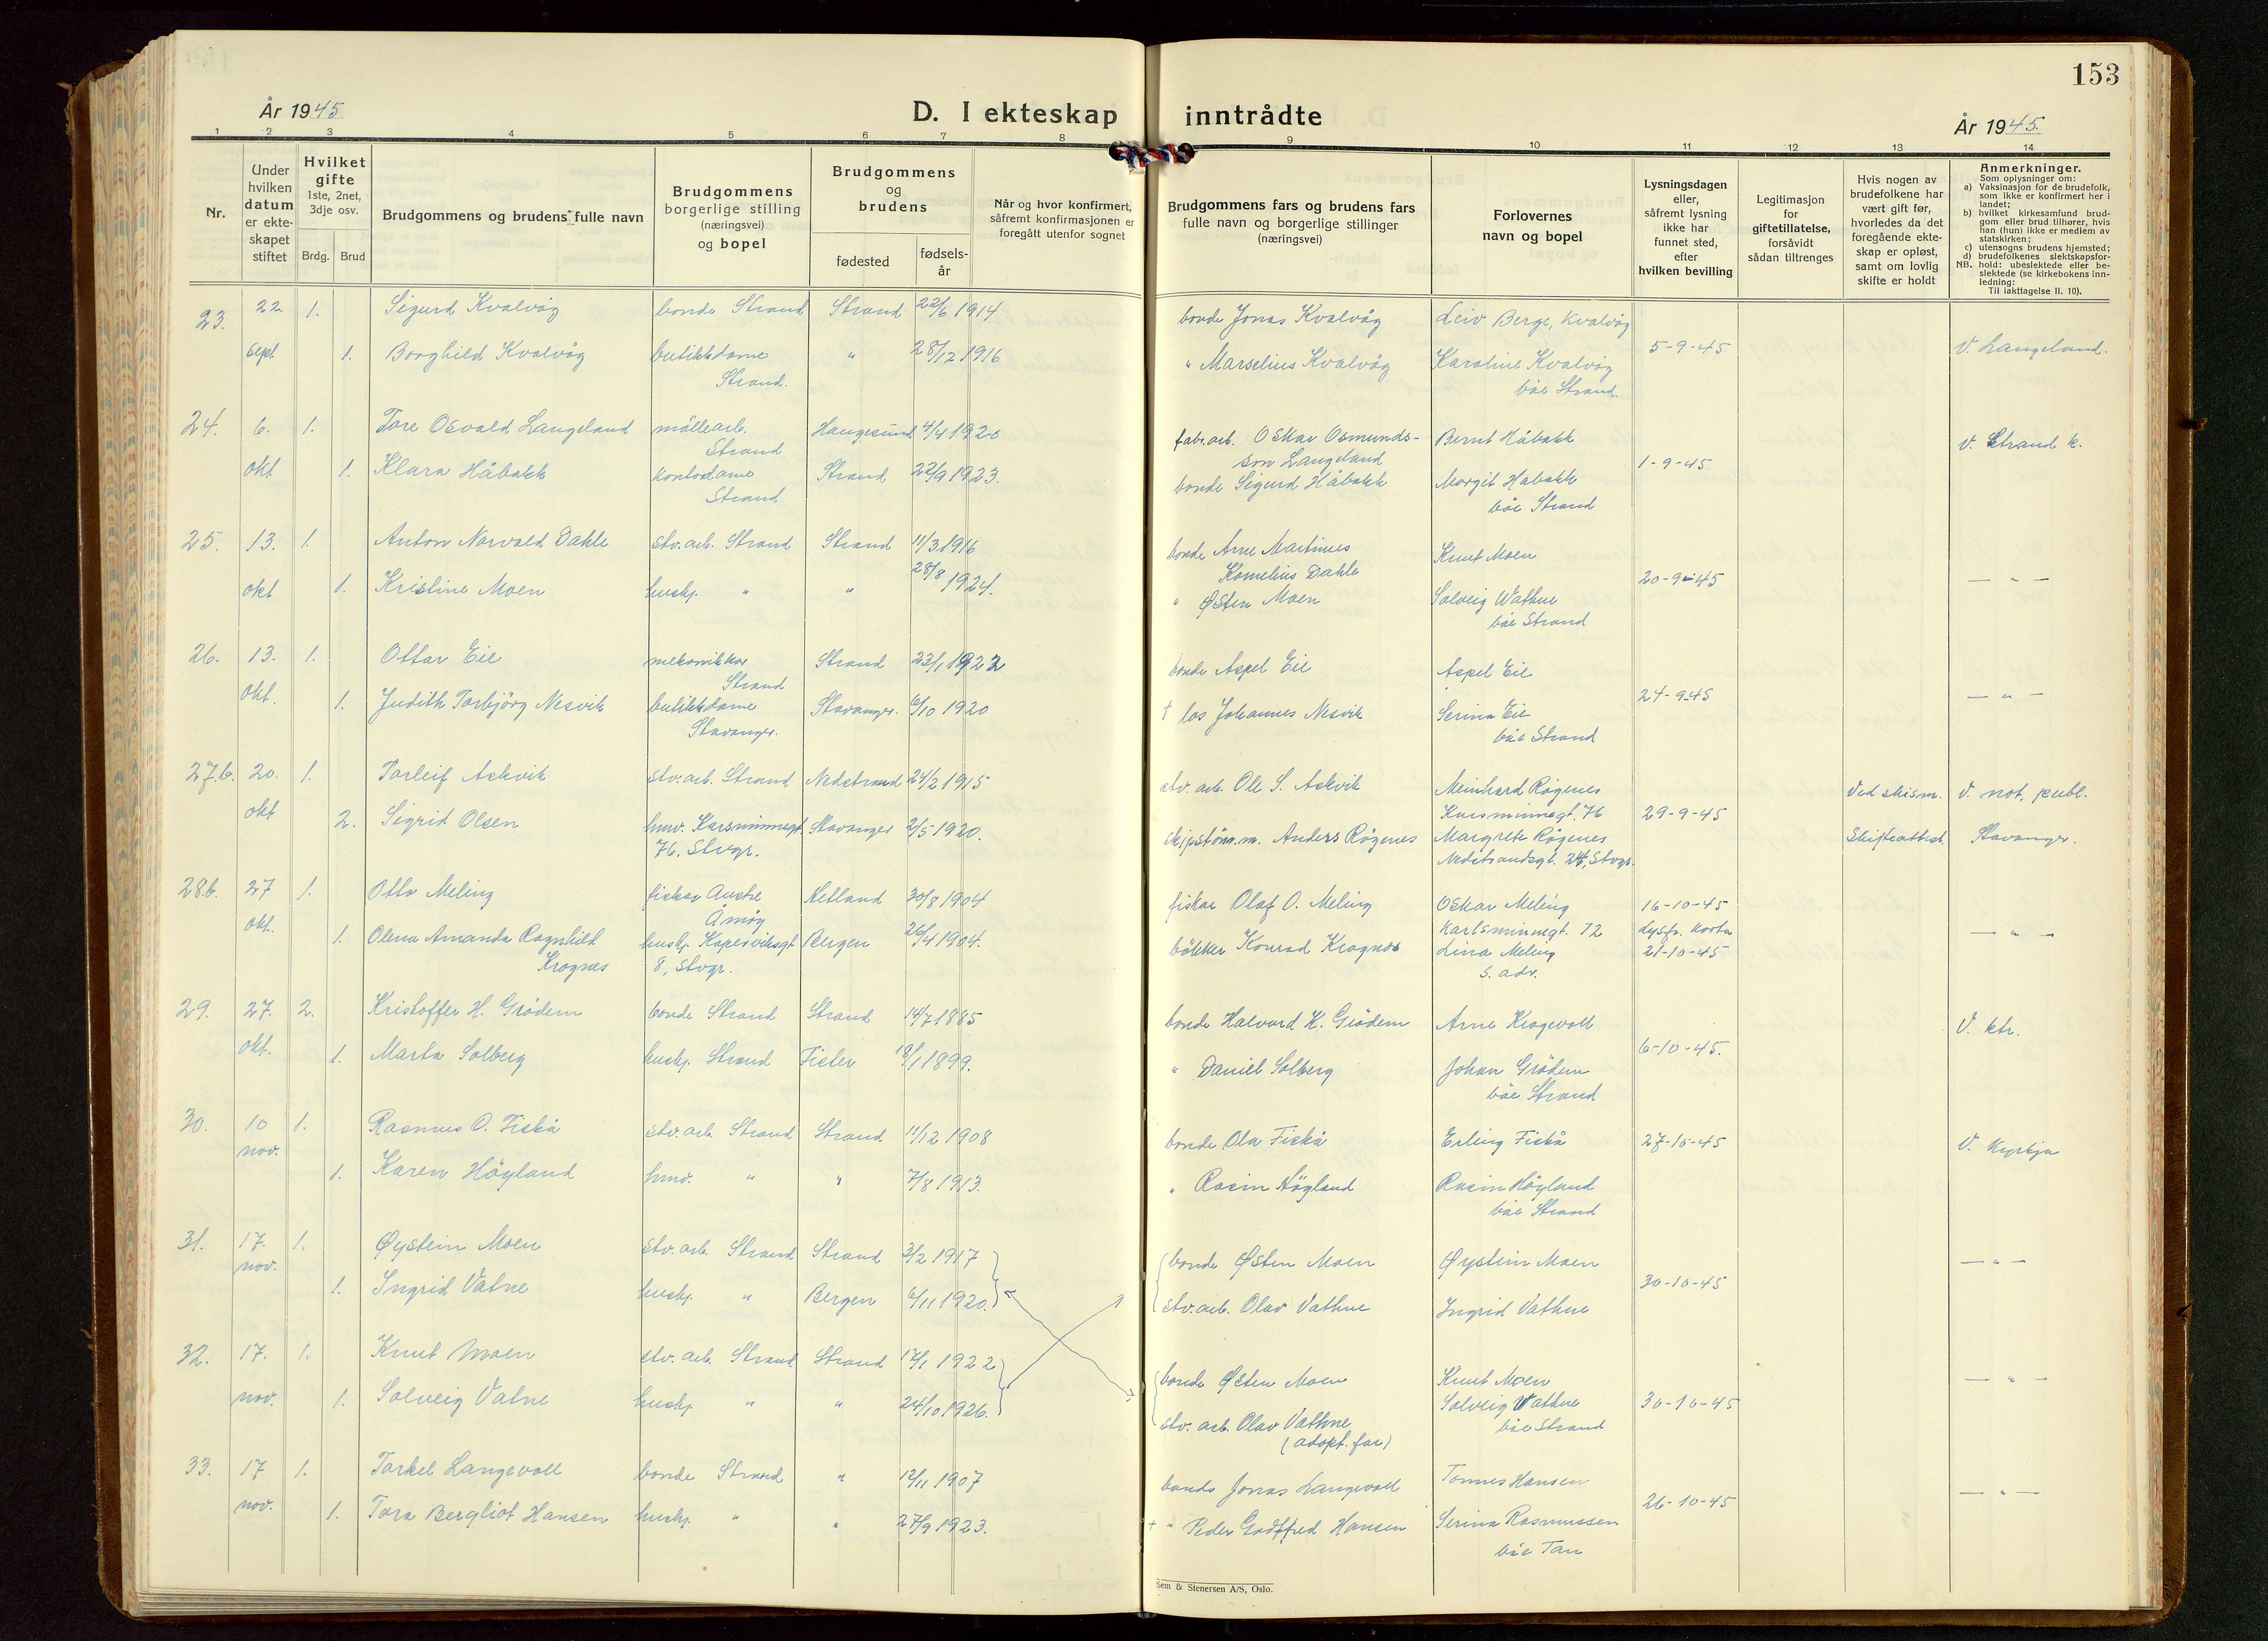 153
År 1945
D. I ekteskap inntrådte
År 1945.
1 2 3 4 5 6 7 8 9 10 11 12 13 14
Nr.
Under hvilken datum er ekteskapet stiftet
Hvilket gifte
1ste, 2net, 3dje osv.
Brdg. Brud
Brudgommens og brudens fulle navn
Brudgommens borgerlige stilling (næringsvei) og bopel
Brudgommens og brudens
fødested
fødsels-år
Når og hvor konfirmert, såfremt konfirmasjonen er foregått utenfor sognet
Brudgommens fars og brudens fars fulle navn og borgerlige stillinger (næringsvei)
Forlovernes navn og bopel
Lysningsdagen eller, såfremt lysning ikke har funnet sted, efter hvilken bevilling
Legitimasjon for giftetillatelse, forsåvidt sådan tiltrenges
Hvis nogen av brudefolkene har vært gift før, hvorledes da det foregående ekteskap er opløst, samt om lovlig skifte er holdt
Anmerkninger.
Som oplysninger om:
a) Vaksinasjon for de brudefolk, som ikke er konfirmert her i landet;
b) hvilket kirkesamfund brudgom eller brud tilhører, hvis han (hun) ikke er medlem av statskirken;
c) utensogns brudens hjemsted;
d) brudefolkenes slektskapsforhold: ubeslektede eller beslektede (se kirkebokens innledning:
NB. Til iakttagelse II. 10).
23. 22. 1. Sigurd Kvalvåg bonde Strand Strand 22/6 1914 bonde Jonas Kvalvåg Leiv Berge, Kvalvåg
sept 1. Borghild Kvalvåg butikkdame " 28/12 1916 " Marselius Kvalvåg Karoline Kvalvåg 5-9-45 V. Langeland.
Strand. båe Strand.
24. 6. 1. Tore Osvald Langeland møllearb. Haugesund 4/4 1920 fabr.arb. Oskar Osmunds- Bernt Håbakk V. Strand k.
Strand son Langeland
okt 1. Klara Håbakk kontordame Strand 22/9 1923. bonde Sigurd Håbakk Margit Håbakk 1-9-45
Strand båe Strand
25. 13. 1. Anton Norvald Dahle stv.arb. Strand Strand 11/3 1916 bonde Arne Martinus Knut Moen
Kornelius Dahle
okt 1. Kristine Moen hushj. " " 28/8 1924. " Østen Moen Solveig Wathne 20-9-45 — " —
båe Strand
26. 13. 1. Ottar Eie mekanikkar Strand 23/1 1922 bonde Aspel Eie Aspel Eie
Strand
okt. 1. Judith Torbjörg Nesvik butikkdame Stavanger. 6/10 1920 † los Johannes Nesvik Serina Eie 24-9-45 — " —
Stavanger. båe Strand
27.b. 20. 1. Torleif Askvik stv.arb. Strand Nedstrand 24/2 1915 stv. arb. Ole S. Askvik Meinhard Røgenes Ved skism. V. not. publ.
Karsminnegt. 76 29-9-45
okt 2. Sigrid Olsen hmv. Karsminnegt Stavanger 2/5 1920. skipstømr.m. Anders Røgenes Margrete Røgenes Skifteattest. Stavanger.
76. Stvgr. Nedstrandsgt. 24, Stvgr.
28b. 27 1. Otto Meling fiskar Austre Hetland 30/8 1904 fiskar Olaf O. Meling Oskar Meling 16-10-45
Åmøy
okt. 1. Olena Amanda Ragnhild hushj. Kopervikgt Bergen 26/4 1904. bøkker Konrad Krognes Karlsminnegt. 72 lysfr. korta — " —
Krognes 8, Stvgr. Lina Meling 21-10-45
s. adr.
29. 27. 2. Kristoffer H. Grödem bonde Strand Strand 14/7 1885 bonde Halvard K. Grödem Arne Krogevoll V. ktr.
okt. 1. Marta Solberg hushj. Strand Fister 18/1 1899. " Daniel Solberg Johan Grödem 6-10-45.
båe Strand
30. 10 1. Rasmus O. Fiskå stv.arb. Strand Strand 11/12 1908 bonde Ola Fiskå Erling Fiskå 27-10-45 V. Kyrkja
nov. 1. Karen Höyland hmv. " " 7/8 1913. " Rasin Höyland Rasin Höyland
båe Strand
31. 17. 1. Øystein Moen stv. arb. Strand Strand 3/2 1917 bonde Østen Moen Øystein Moen — " —
nov. 1. Ingrid Vatne hushj. " Bergen 6/11 1920. stv.arb. Olav Vathne Ingrid Vathne 30-10-45
32. 17. 1. Knut Moen stv. arb. Strand Strand 17/1 1922 bonde Østen Moen Knut Moen — " —
nov. 1. Solveig Vatne hushj. " " 24/10 1926. stv. arb. Olav Vathne Solveig Vathne 30-10-45
(adopt. far) båe Strand
33. 17 1. Torkel Langevoll bonde Strand " 12/11 1907 bonde Jonas Langevoll Tonnes Hansen
nov. 1. Tora Bergliot Hansen hushj. " " 27/9 1923. † " Peder Godtfred Hansen Serina Rasmussen 26-10-45 — " —
båe Tau
Sem & Stenersen A/S, Oslo.